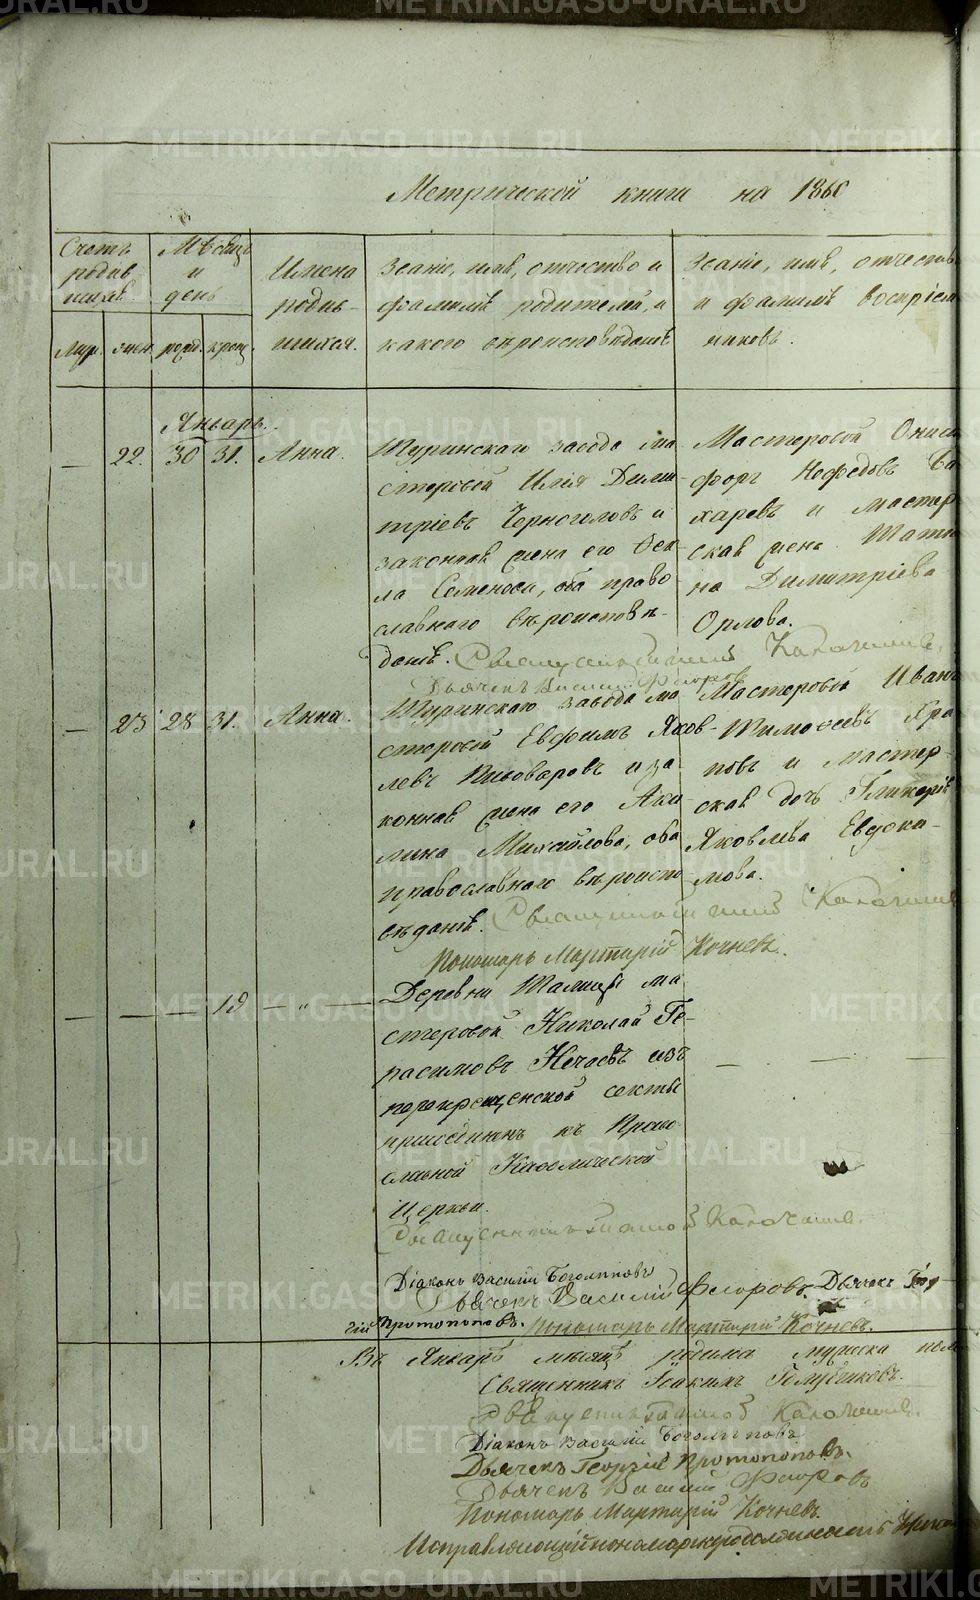 Метрической книги на 1860
Счетъ родив-шихся.
Мѣсяцъ и день
Имена родив-шихся.
Званіе, имя, отчество и фамилія родителей, и какого вѣроисповѣданія
Званіе, имя, отчество и фамилія воспріем-никовъ.
муж. жен. рожд. крещ.
Январь.
— 22. 30 31. Анна.
Туринскаго завода ма-
стеровой Илія Дими-
тріевъ Черноголовъ и
законная жена его Фек-
ла Семенова, оба право-
славнаго вѣроисповѣ-
данія. Священник Калачиковъ
Дьячекъ Василій Флоровъ
Мастеровой Ониси-
форъ Нефедовъ
харевъ и мастер-
ская жена Татья-
на Димитріева
Орлова.
— 23 28 31. Анна.
Туринскаго завода ма-
стеровой Евфимъ Яков-
левъ Пивоваровъ и за-
конная жена его Аки-
лина Михайлова, оба
православнаго вѣроиспо-
вѣданія.
Пономарь Мартирій Кочневъ.
Мастеровой Иванъ
Тимоѳеевъ Хра-
повъ и мастер-
ская дочь Гликерія
Яковлева Евдоки-
мова.
— — — 19 — „ —
Деревни Талицы ма-
стеровой Николай Ге-
расимовъ Нечаевъ изъ
перекрещенской секты
присоединенъ къ Право-
славной Каѳолической
Церкви.
Діаконъ Василій Боголѣповъ
Дьячекъ Василій Флоровъ. Дьячекъ Геор-
гій Протопоповъ. Пономарь Мартирій Кочневъ.
Въ Январѣ мѣсяцѣ родима мужеска пола
Священникъ Іоакимъ Голубчиковъ.
Діаконъ Василій Боголѣповъ
Дьячекъ Георгій Протопоповъ.
Дьячекъ Василій Флоровъ
Пономарь Мартирій Кочневъ.
Исправляющій пономарскую должность
METRIKI.GASO-URAL.RU